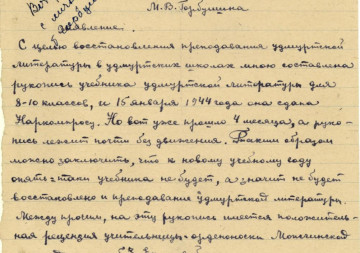 М. В. Горбушина
заявление.
С целью восстановления преподавания удмуртской
литературы в удмуртских школах мною составлена
рукопись учебника удмуртской литературы для
8-10 классов, и 15 января 1944 года она сдана
Наркомпросу. Но вот уже прошло 4 месяца, а руко-
пись лежит почти без движения. Таким образом
можно заключить, что к новому учебному году
опять-таки учебника не будет, а значит не будет
восстановлено и преподавание удмуртской литературы.
Между прочим, на эту рукопись имеется положитель-
ная рецензия учительницы-орденоноски